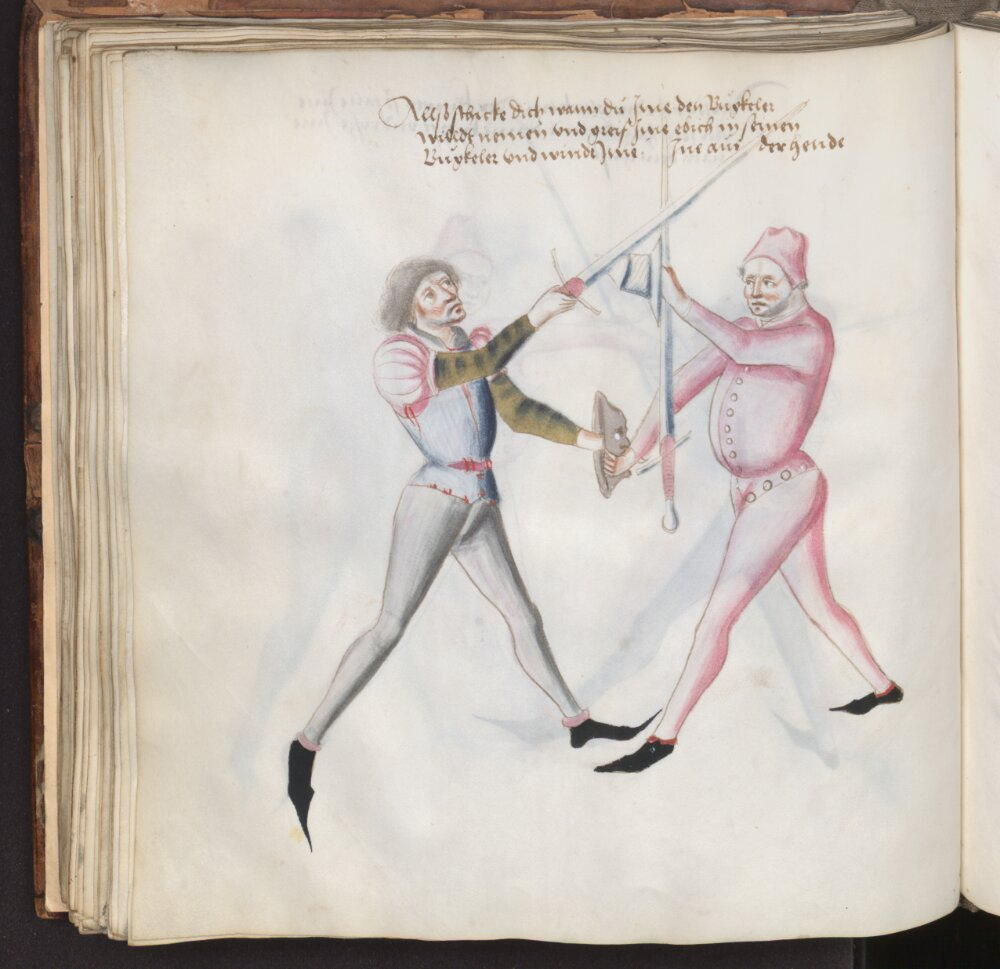 Allso schicke dich wann du Ime den Buckeler
willdt nemen vnd greif Ime ebich in seinen
Buckeler vnd windt Ime Ine aus der hende